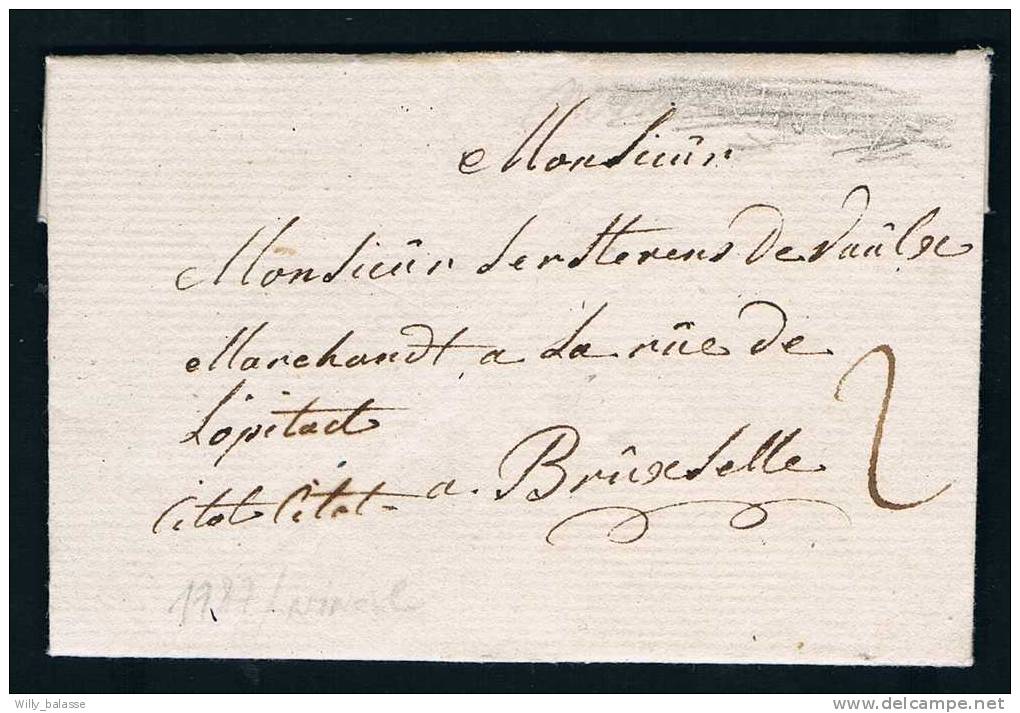 Monsieûr
Monsieûr Serstevens De Vaûlx
Marchandt a La rûe de
Lopitael
Citot Citot a Brûxselle
2
1787 / NINOVE
Willy_balasse
delcampe.net